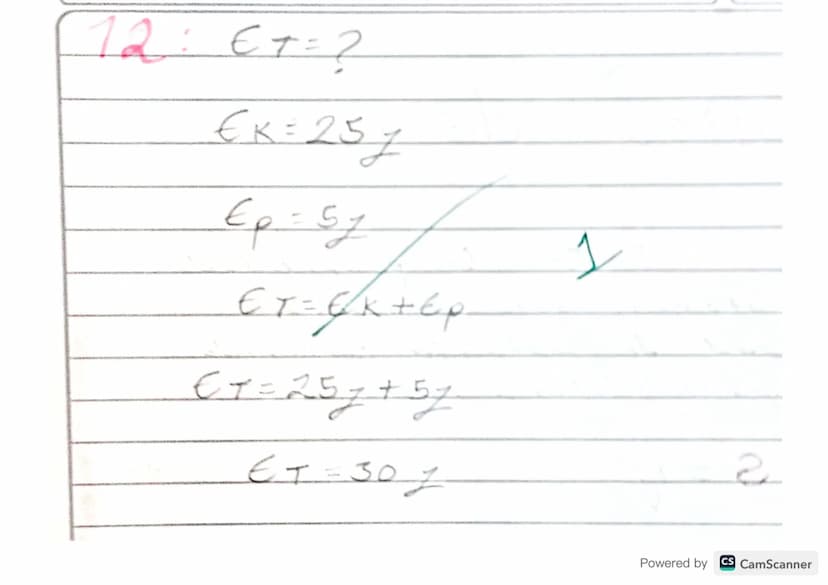 12: ET=?
EK=25J
Ep=5J
1
ET=EK+Ep
ET=25J+5J
ET=30J
2
Powered by CS CamScanner